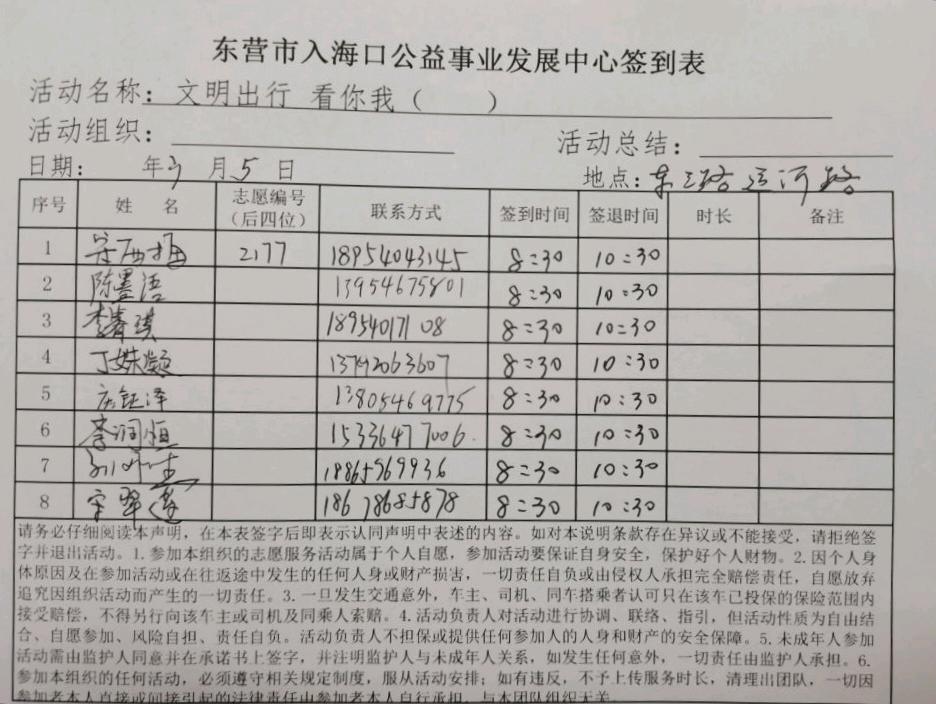 东营市入海口公益事业发展中心签到表
活动名称：文明出行 看你我（ ）
活动组织：
活动总结：
日期： 年3月5日
地点：东三路运河路
序号 姓 名 志愿编号（后四位） 联系方式 签到时间 签退时间 时长 备注
1 2177 18954043145 8:30 10:30
2 陈墨语 13954675801 8:30 10:30
3 李青琪 18954017108 8:30 10:30
4 丁姝凝 13792063607 8:30 10:30
5 庆钰泽 13805469775 8:30 10:30
6 李润恒 15336477006 8:30 10:30
7 18865969936 8:30 10:30
8 18678685878 8:30 10:30
请务必仔细阅读本声明，在本表签字后即表示认同声明中表述的内容。如对本说明条款存在异议或不能接受，请拒绝签
字并退出活动。1.参加本组织的志愿服务活动属于个人自愿，参加活动要保证自身安全，保护好个人财物。2.因个人身
体原因及在参加活动或在往返途中发生的任何人身或财产损害，一切责任自负或由侵权人承担完全赔偿责任，自愿放弃
追究因组织活动而产生的一切责任。3.一旦发生交通意外，车主、司机、同车搭乘者认可只在该车已投保的保险范围内
接受赔偿，不得另行向该车主或司机及同乘人索赔。4.活动负责人对活动进行协调、联络、指引，但活动性质为自由结
合、自愿参加、风险自担、责任自负。活动负责人不担保或提供任何参加人的人身和财产的安全保障。5.未成年人参加
活动需由监护人同意并在承诺书上签字，并注明监护人与未成年人关系，如发生任何意外，一切责任由监护人承担。6.
参加本组织的任何活动，必须遵守相关规定制度，服从活动安排；如有违反，不予上传服务时长，清理出团队，一切因
参加者本人直接或间接引起的法律责任由参加者本人自行承担，与本团队组织无关。